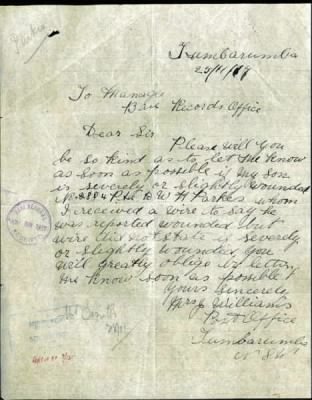 Tumbarumba
25/4/17
To Manager
Base Records Office
Dear Sir
Please will you
be so kind as to let me know
as soon as possible if my son
is severely or slightly wounded
Pte D W H Parkes whom
I received a wire to say he
was reported wounded but
wire did not state is severely
or slightly wounded you
will greatly oblige by letting
me know soon as possible
Yours Sincerely
Mrs J Williams
Post Office
Tumbarumba
N S W